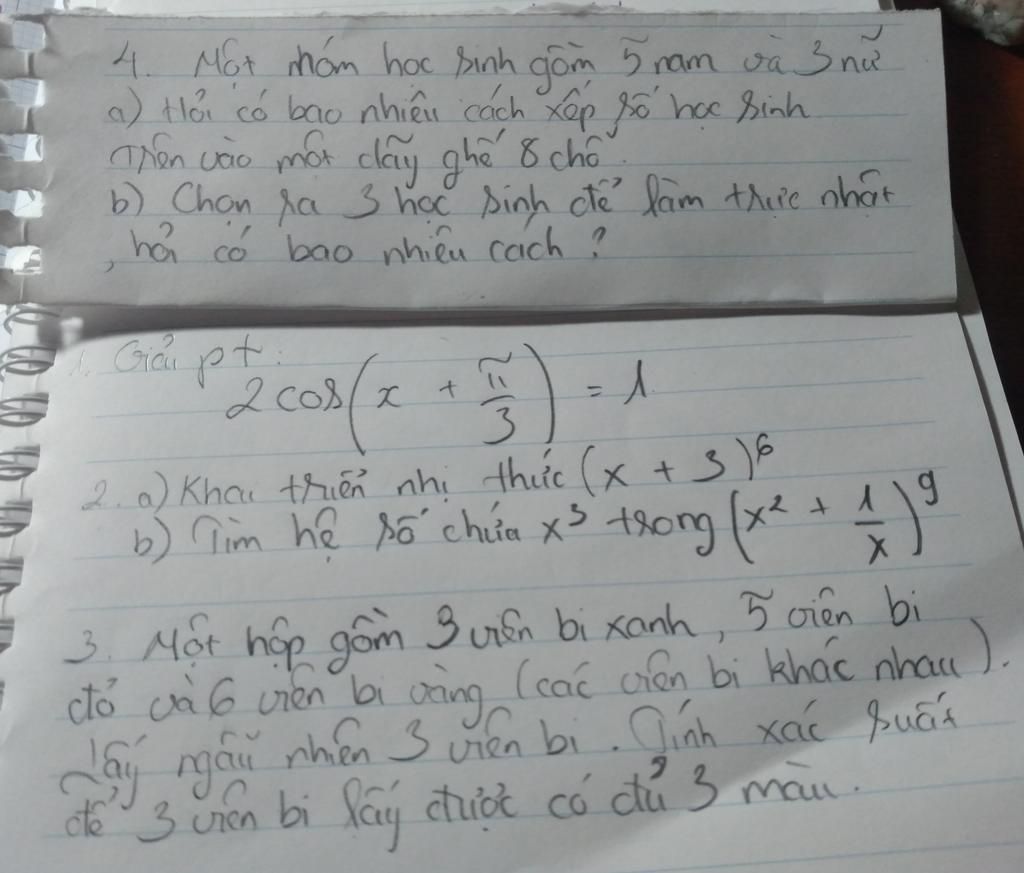 4. Một nhóm học sinh gồm 5 nam và 3 nữ
a) Hỏi có bao nhiêu cách xếp số học sinh
Trên vào một dãy ghế 8 chỗ.
b) Chọn ra 3 học sinh để làm trực nhật
, hỏi có bao nhiêu cách?
1. Giải pt:
2cos(x + π/3) = 1
2. a) Khai triển nhị thức (x + 3)⁶
b) Tìm hệ số chứa x³ trong (x² + 1/x)⁹
3. Một hộp gồm 3 viên bi xanh, 5 viên bi
đỏ và 6 viên bi vàng (các viên bi khác nhau).
Lấy ngẫu nhiên 3 viên bi. Tính xác suất
để 3 viên bi lấy được có đủ 3 màu.